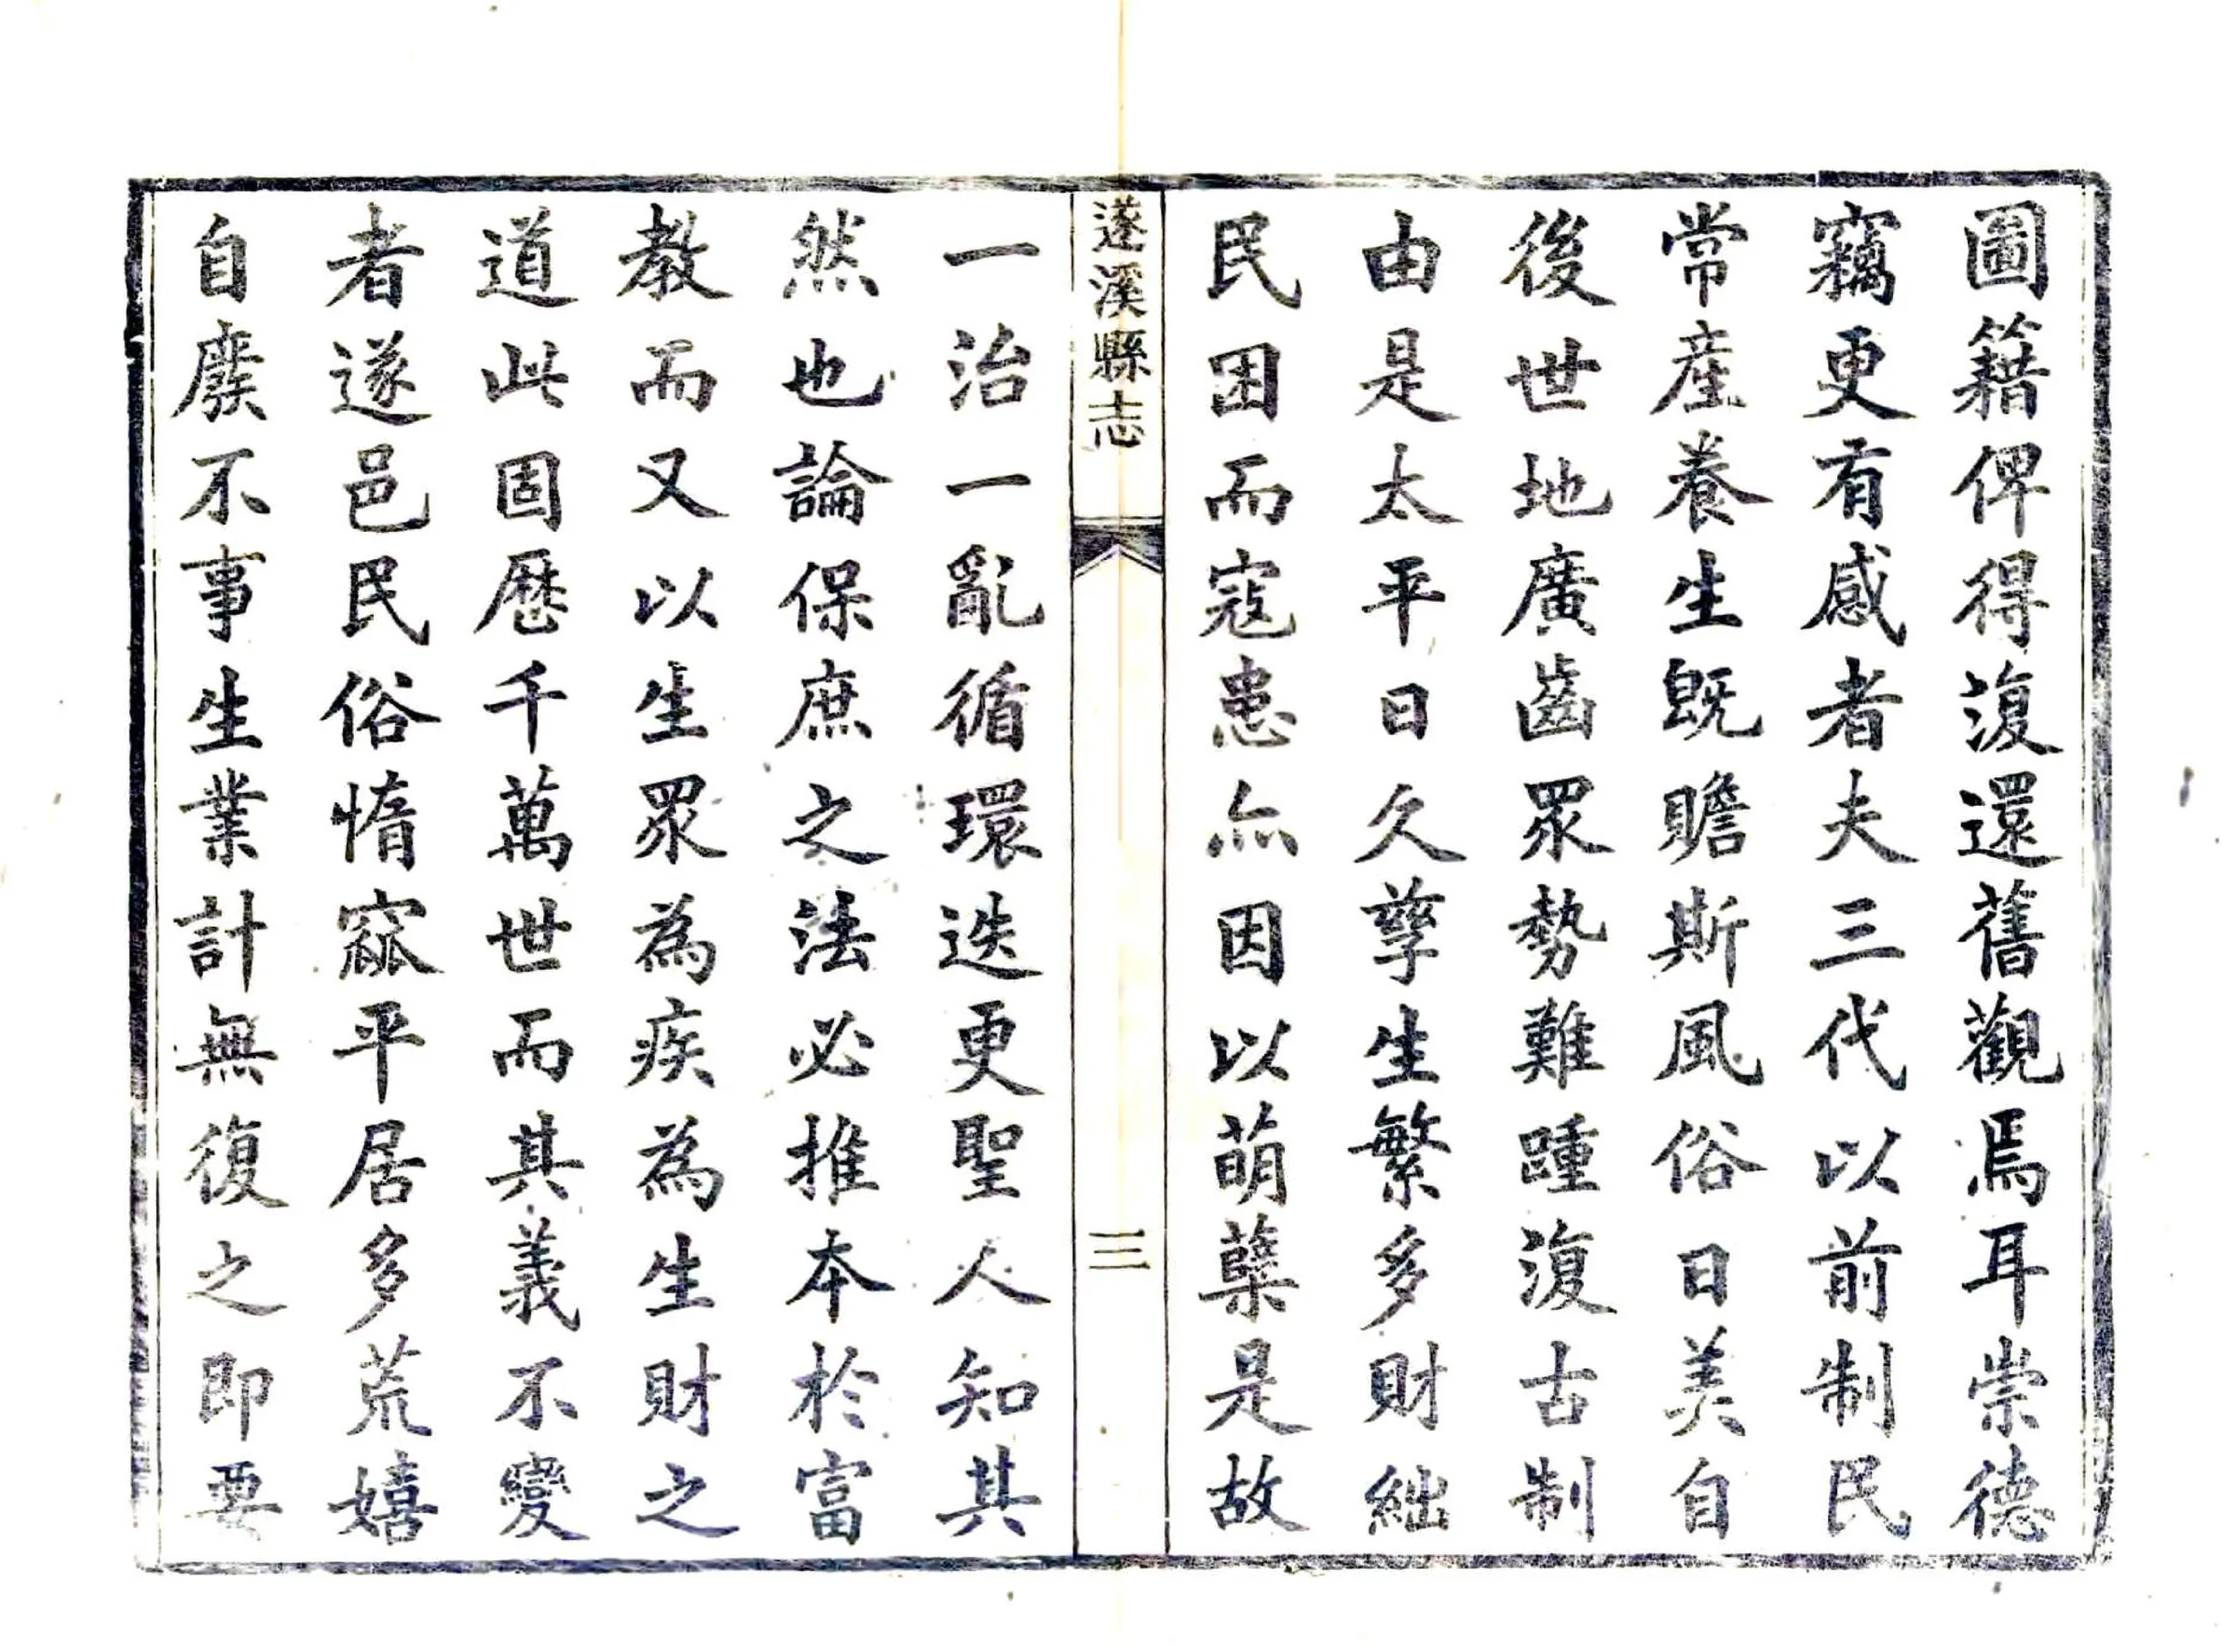 圖籍俾得復還舊觀焉耳崇德
竊更有感者夫三代以前制民
常產養生既贍斯風俗日美自
後世地廣齒眾勢難踵復古制
由是太平日久孳生繁多財絀
民困而寇患亦因以萌蘖是故
蓬溪縣志
三
一治一亂循環迭更聖人知其
然也論保庶之法必推本於富
教而又以生眾為疾為生財之
道此固歷千萬世而其義不變
者遂邑民俗惰窳平居多荒嬉
自廢不事生業計無復之即要